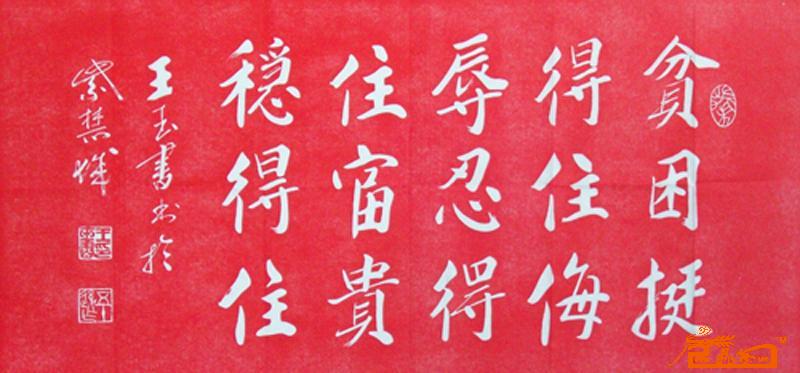 貧困挺
得住侮
辱忍得
住富貴
穩得住
王玉書书於
紫禁城